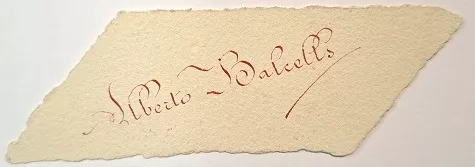 Alberto Balcells